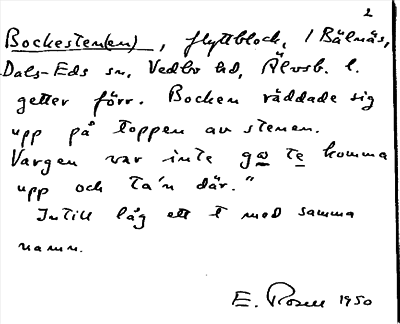 2
Bockesten(en), flyttblock, i Bälnäs,
Dals-Eds sn, Vedbo hd, Älvsb. l.
getter förr. Bocken räddade sig
upp på toppen av stenen.
Vargen var inte go te komma
upp och ta'n där."
Intill låg ett t med samma
namn.
E. Rosell 1950